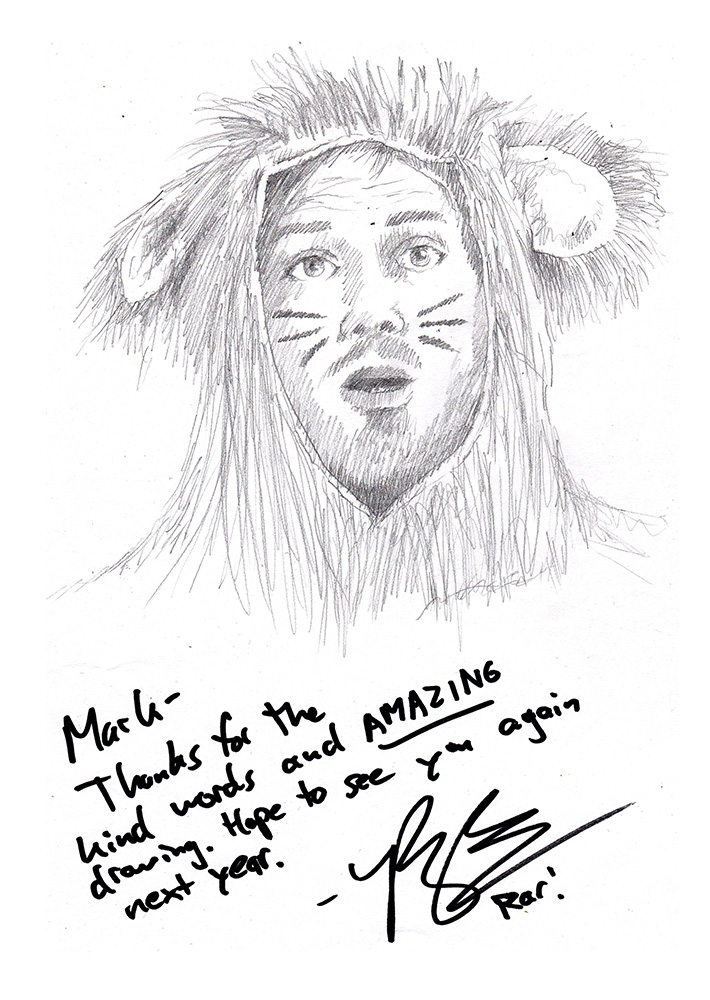 Mark-
Thanks for the
kind words and AMAZING
drawing. Hope to see you again
next year.
-
Rar!